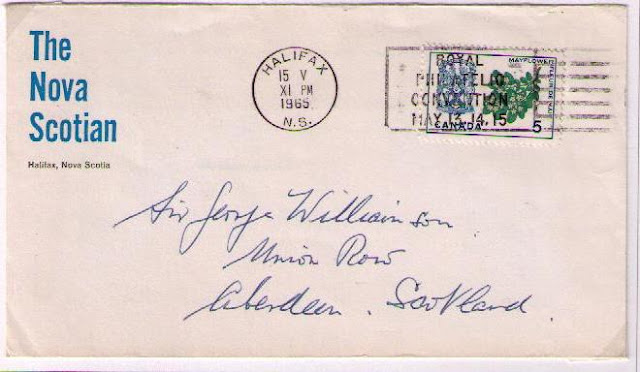 The
Nova
Scotian
Halifax, Nova Scotia
HALIFAX
15 V
XI PM
1965
N.S.
ROYAL
PHILATELIC
CONVENTION
MAY, 13, 14, 15
MAYFLOWER
CANADA 5
Sir George Williamson
Union Row
Aberdeen. Scotland.